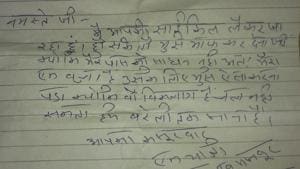 नमस्ते जी -
मै आपकी साईकिल लेकर जा
रहा हूं। हो सके तो मुझे माफ कर देना जी
क्योंकि मेरे पास कोई साधन नही था। मेरा
एक बच्चा है उसके लिए मुझे ऐसा करना
पड़ा क्योंकि वो विकलांग है। चल नही
सकता हमे बरेली तक जाना है।
आपका
एक यात्री
मजदूर